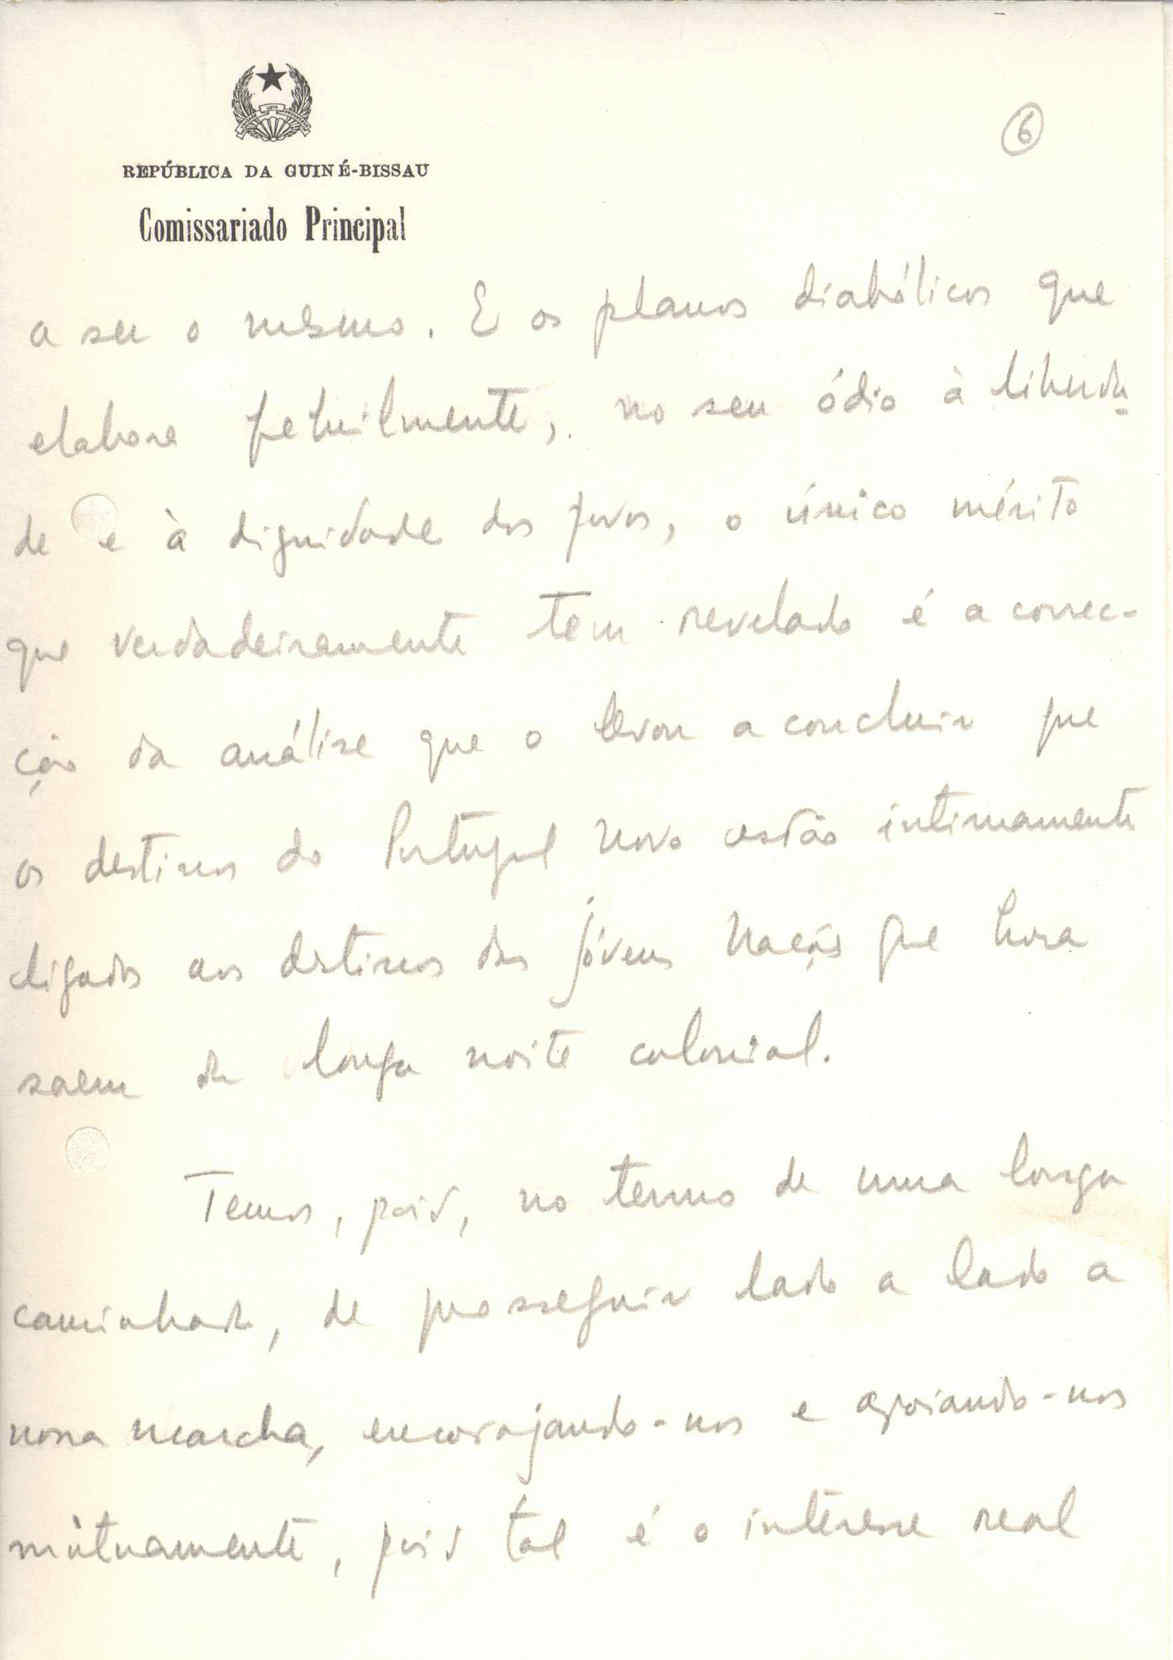 6
REPÚBLICA DA GUINÉ-BISSAU
Comissariado Principal
a ser o mesmo. E os planos diabólicos que
elabora febrilmente, no seu ódio à liberda-
de e à dignidade dos povos, o único mérito
que verdadeiramente tem revelado é a correc-
ção da análise que o levou a concluir que
os destinos do Portugal novo estão intimamente
ligados aos destinos das jóvens Nações que hora
saem da longa noite colonial.
Temos, pois, no termo de uma longa
caminhada, de prosseguir lado a lado a
nossa marcha, encorajando-nos e apoiando-nos
mùtuamente, pois tal é o interesse real